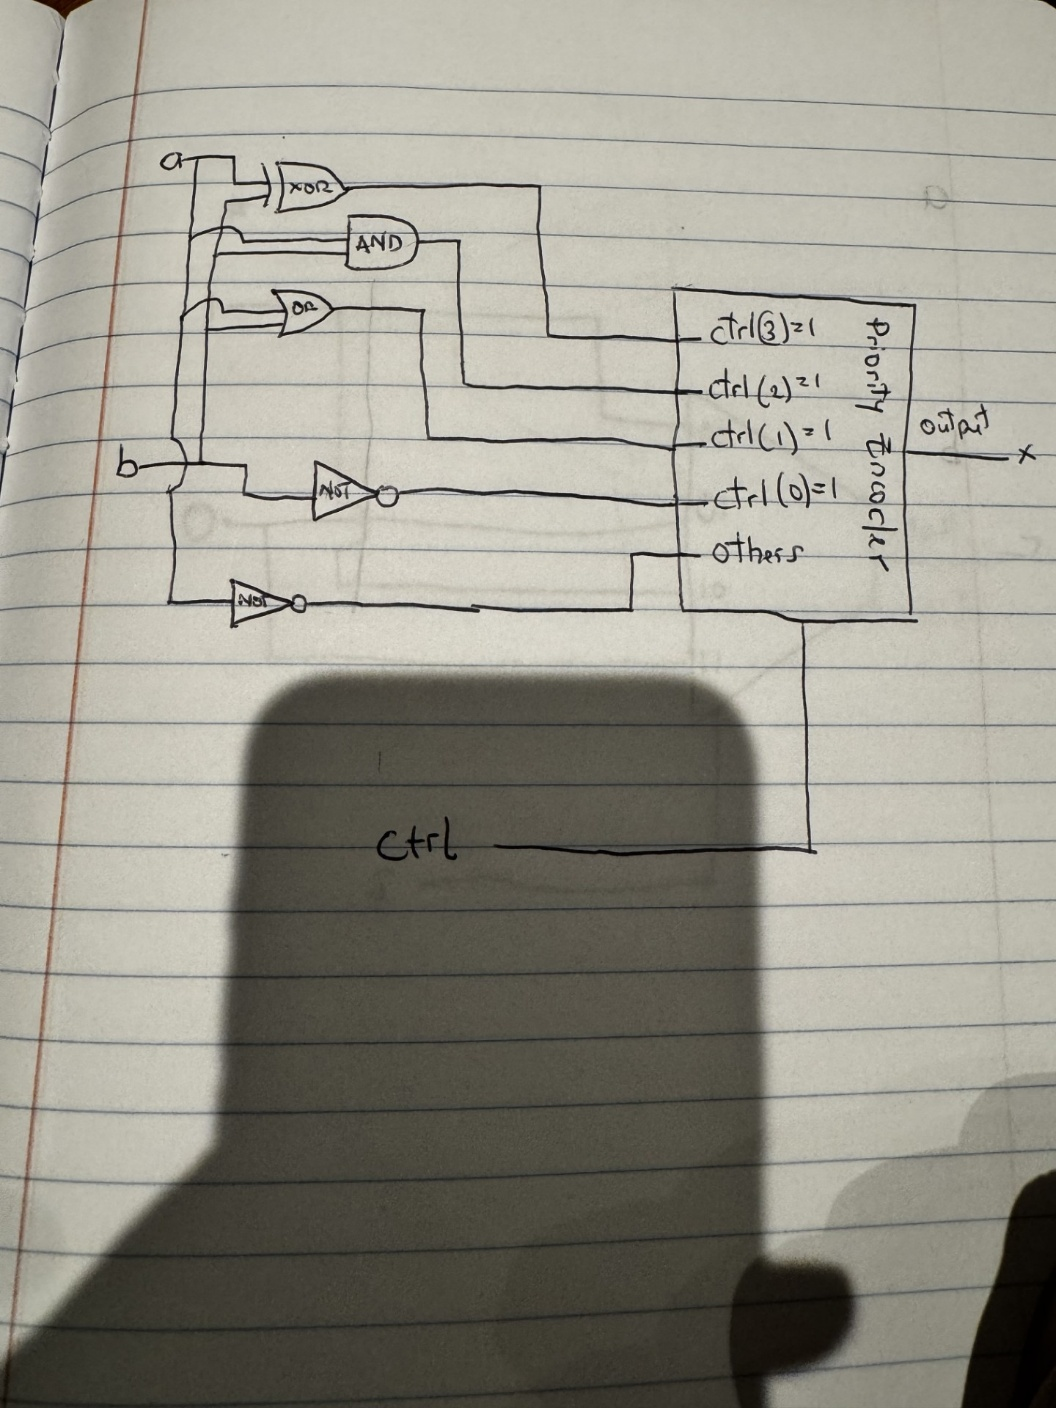 a
XOR
AND
OR
b
NOT
NOT
ctrl(3)=1
ctrl(2)=1
ctrl(1)=1
ctrl(0)=1
others
Priority Encoder
output
x
Ctrl